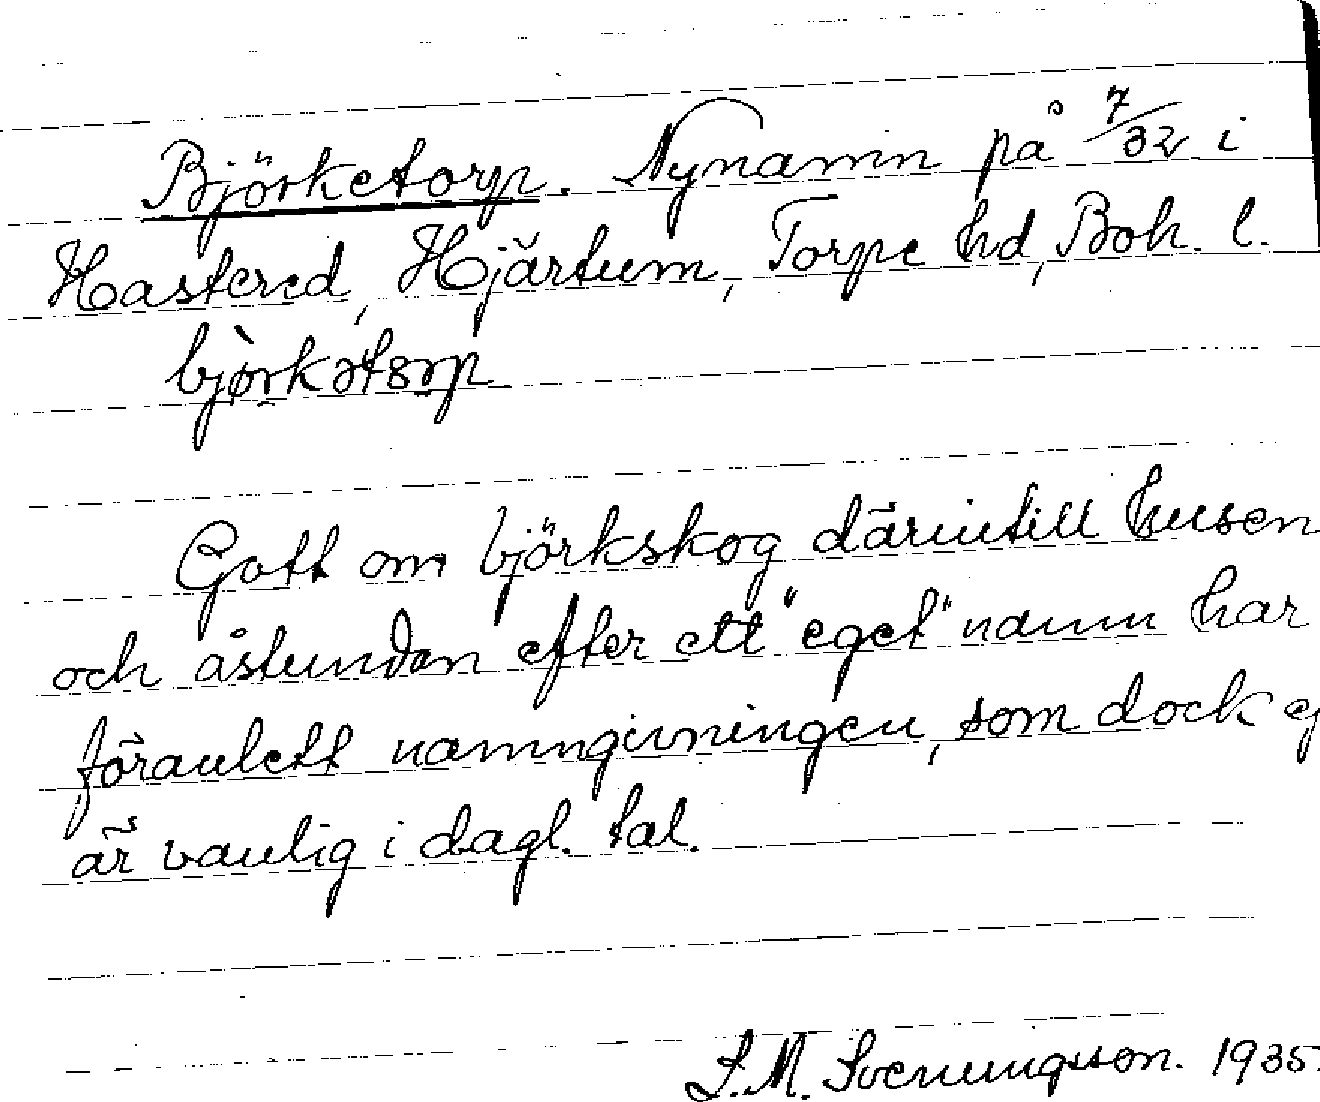 Björketorp. Nynamn på 7/32 i
Hastered, Hjärtum, Torpe hd, Boh. l.
bjə̀rkətɔrp
Gott om björkskog därintill husen
och åstundan efter ett "eget" namn har
föranlett namngivningen, som dock ej
är vanlig i dagl. tal.
S. M. Svenungsson. 1935.